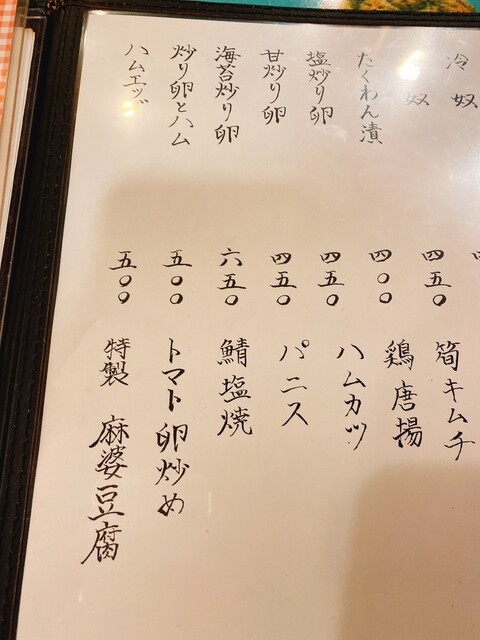 冷奴
奴
たくわん漬
塩炒り卵
甘炒り卵
海苔炒り卵
炒り卵とハム
ハムエッグ
四五〇
四〇〇
四五〇
四五〇
六五〇
五〇〇
五〇〇
筍キムチ
鶏唐揚
ハムカツ
パニス
鯖塩焼
トマト卵炒め
特製 麻婆豆腐